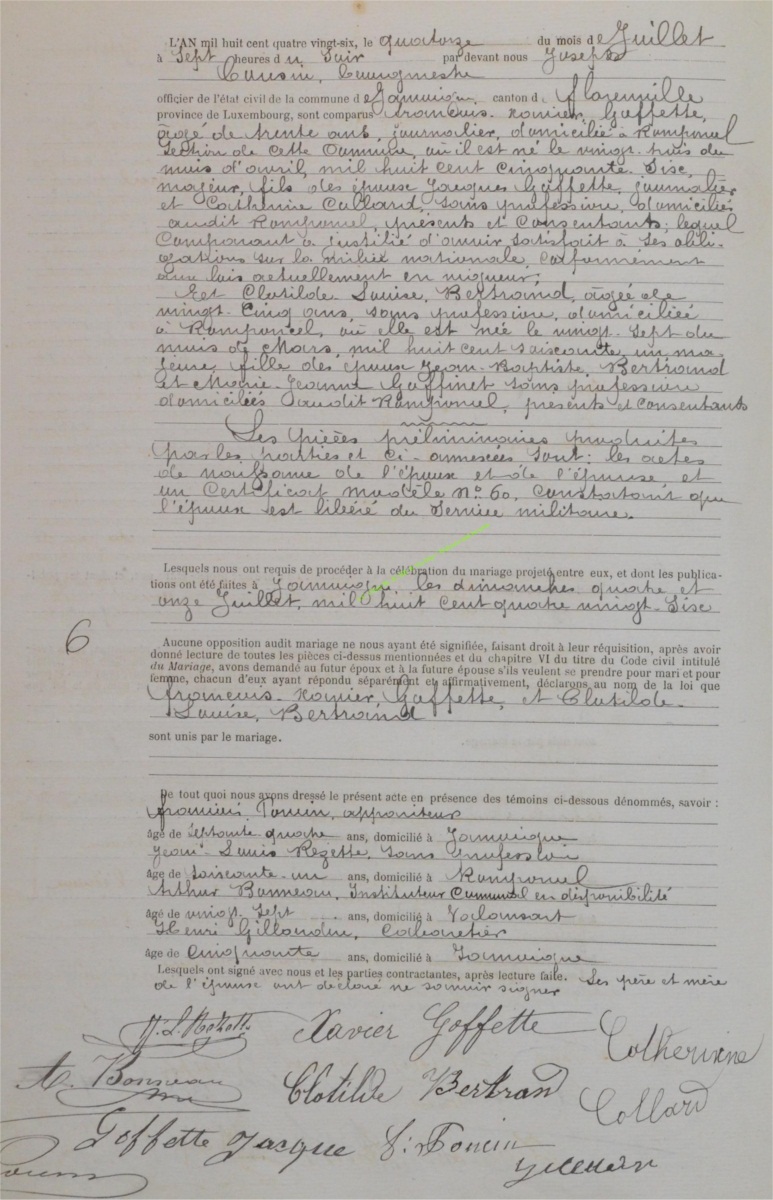 L'AN mil huit cent quatre vingt-six, le quatorze du mois de Juillet
à Sept heures du Soir par devant nous Joseph
Bourgmestre
officier de l'état civil de la commune de Jamoigne, canton de Florenville
province de Luxembourg, sont comparus François-Xavier, Goffette,
âgé de trente ans, journalier, domicilié à Romponcel
Section de cette Commune, où il est né le vingt-trois du
mois d'avril, mil huit cent cinquante-Six,
majeur, fils des époux Jacques Goffette, journalier
et Catherine Collard, sans profession, domiciliés
audit Romponcel, présents et consentants; lequel
Comparant a justifié d'avoir satisfait à ses obli-
gations sur la milice nationale, conformément
aux lois actuellement en vigueur;
Et Clotilde-Louise, Bertrand, âgée de
vingt-Cinq ans, sans profession, domiciliée
à Romponcel, où elle est née le vingt-Sept du
mois de Mars, mil huit cent soixante-un, ma-
jeure, fille des époux Jean-Baptiste, Bertrand
et Marie-Jeanne Goffinet sans profession
domiciliés audit Romponcel, présents et consentants
Les pièces préliminaires produites
par les parties et ci-annexées sont: les actes
de naissance de l'époux et de l'épouse et
un Certificat modèle No 60, constatant que
l'époux est libéré du Service militaire.
Lesquels nous ont requis de procéder à la célébration du mariage projeté entre eux, et dont les publica-
tions ont été faites à Jamoigne, les dimanches quatre et
onze Juillet, mil huit cent quatre vingt-Six
6
Aucune opposition audit mariage ne nous ayant été signifiée, faisant droit à leur réquisition, après avoir
donné lecture de toutes les pièces ci-dessus mentionnées et du chapitre VI du titre du Code civil intitulé
du Mariage, avons demandé au futur époux et à la future épouse s'ils veulent se prendre pour mari et pour
femme, chacun d'eux ayant répondu séparément et affirmativement, déclarons au nom de la loi que
François-Xavier, Goffette, et Clotilde-
Louise, Bertrand
sont unis par le mariage.
De tout quoi nous avons dressé le présent acte en présence des témoins ci-dessous dénommés, savoir :
François Poncin, appariteur
âgé de Septante-quatre ans, domicilié à Jamoigne
Jean-Louis Rezette, sans profession
âgé de soixante-un ans, domicilié à Romponcel
Arthur Bonneau, Instituteur Communal en disponibilité
âgé de vingt-Sept ans, domicilié à Valansart
Henri Cabaretier
âge de Cinquante ans, domicilié à Jamoigne
Lesquels ont signé avec nous et les parties contractantes, après lecture faite. Les père et mère
de l'épouse ont déclaré ne savoir signer
Xavier Goffette Catherinne
A. Bonneau Clotilde Bertrand Collard
Goffette Jacque F: Poncin